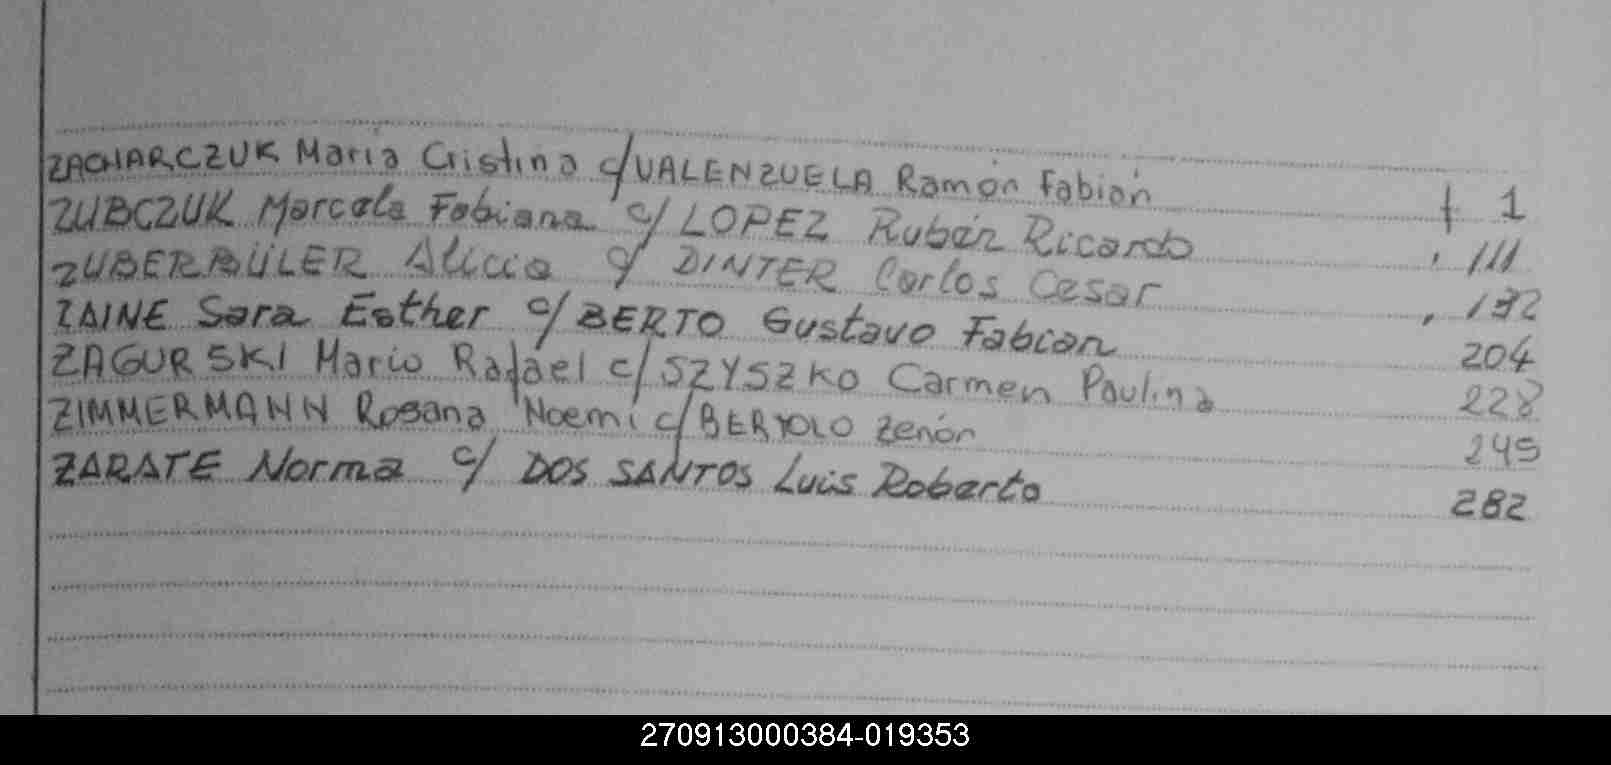 ZACHARCZUK Maria Cristina c/ VALENZUELA Ramón Fabián f 1
ZUBCZUK Marcela Fabiana c/ LOPEZ Rubén Ricardo , 111
ZUBERBÜLER Alicia c/ DINTER Carlos Cesar , 192
ZAINE Sara Esther c/ BERTO Gustavo Fabian 204
ZAGURSKI Mario Rafael c/ SZYSZKO Carmen Paulina 228
ZIMMERMANN Rosana Noemi c/ BERTOLO Zenón 245
ZARATE Norma c/ DOS SANTOS Luis Roberto 282
270913000384-019353